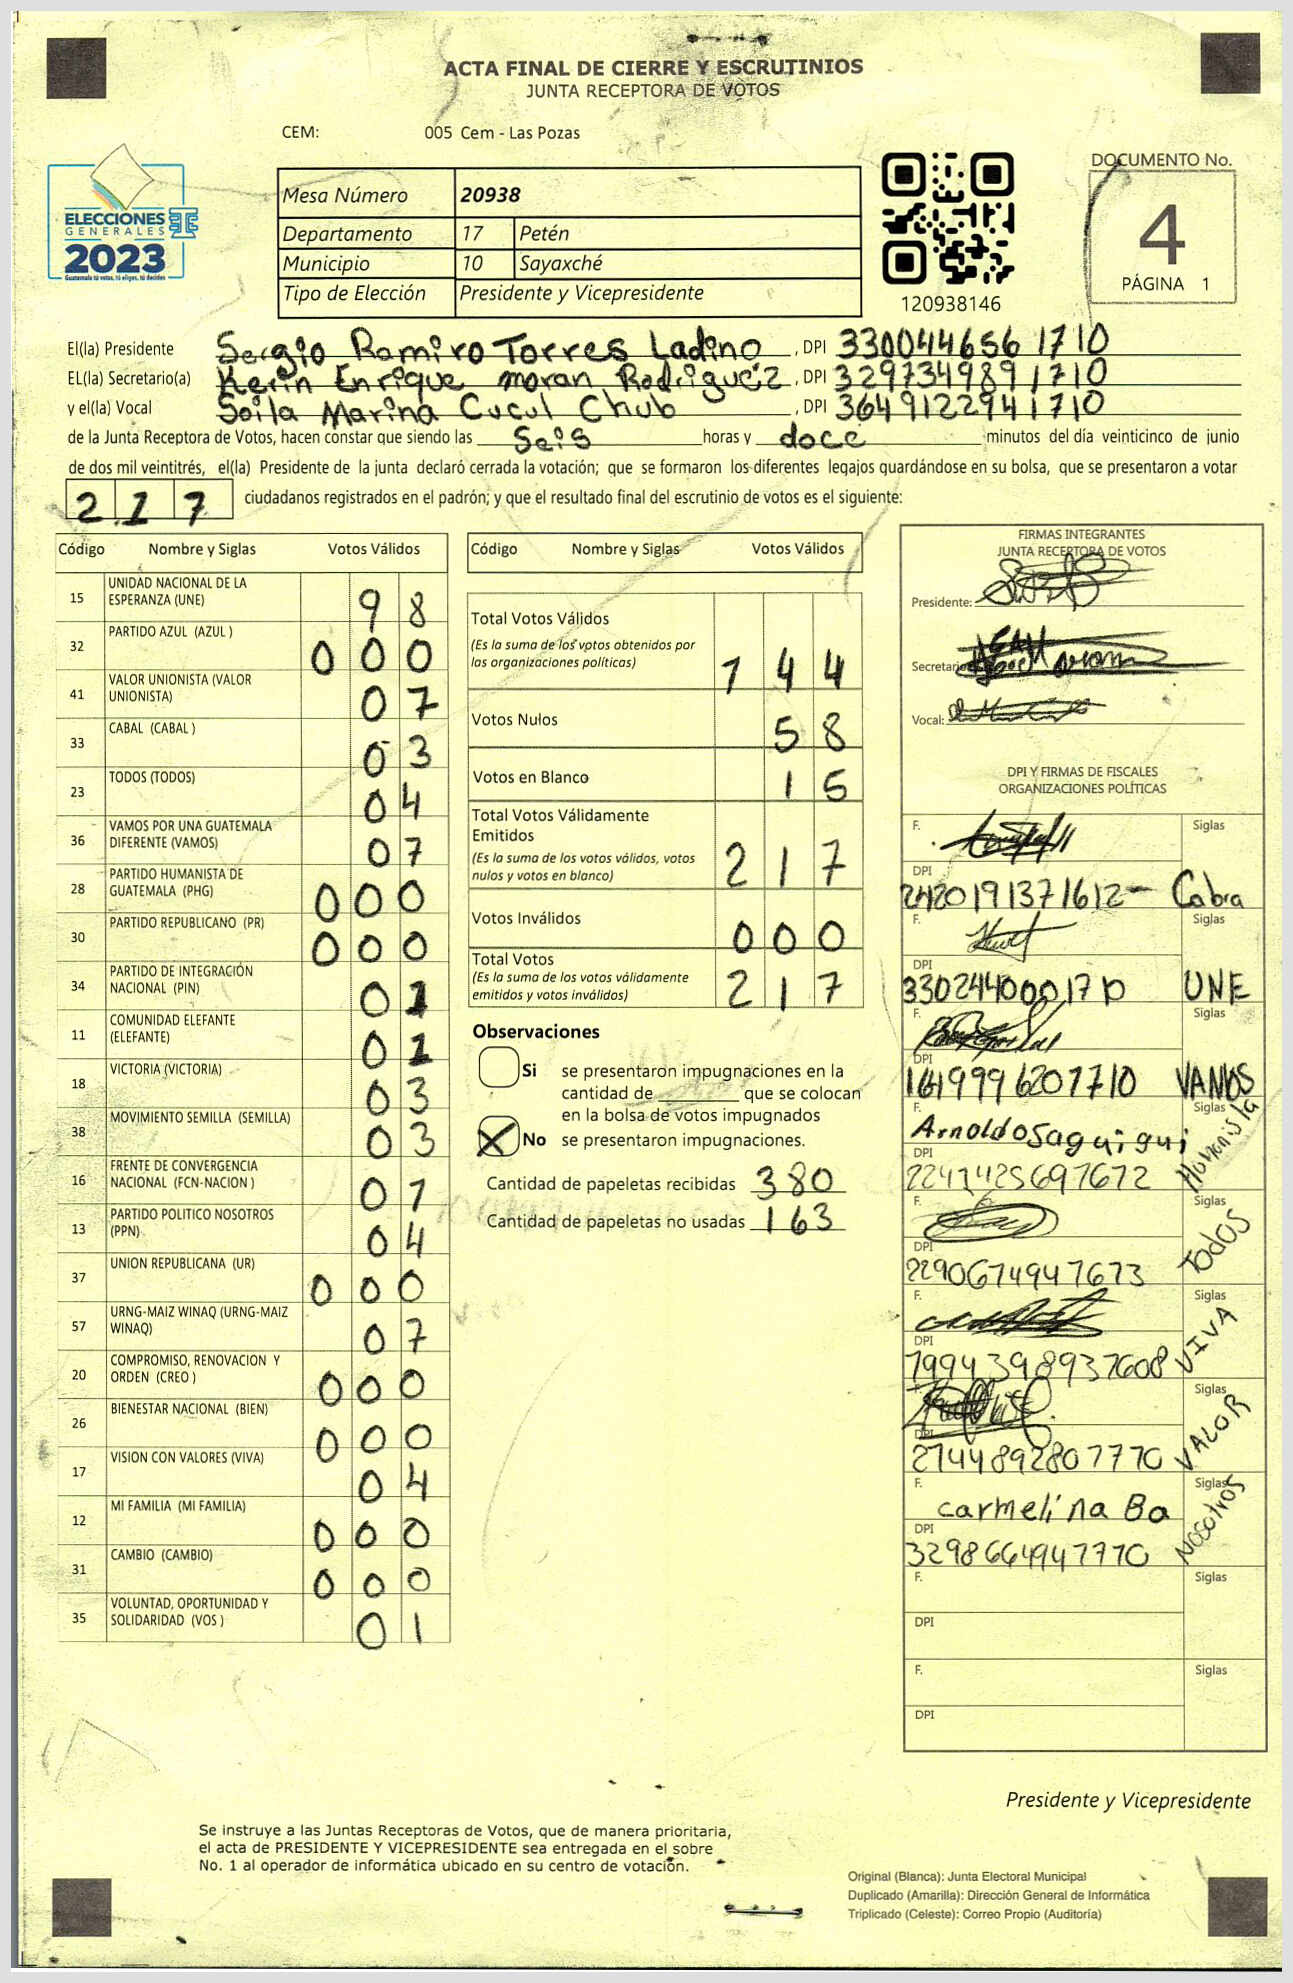 ACTA FINAL DE CIERRE Y ESCRUTINIOS
JUNTA RECEPTORA DE VOTOS
CEM: 005 Cem - Las Pozas
ELECCIONES
GENERALES
2023
Guatemala tú votas, tú eliges, tú decides
Mesa Número 20938
Departamento 17 Petén
Municipio 10 Sayaxché
Tipo de Elección Presidente y Vicepresidente
120938146
DOCUMENTO No.
4
PÁGINA 1
El(la) Presidente Sergio Ramiro Torres Ladino, DPI 3300446561710
EL(la) Secretario(a) Kerin Enrique moran Rodriguéz, DPI 3297349891710
y el(la) Vocal Soila Marina Cucul Chub, DPI 3649122941710
de la Junta Receptora de Votos, hacen constar que siendo las Seis horas y doce minutos del día veinticinco de junio
de dos mil veintitrés, el(la) Presidente de la junta declaró cerrada la votación; que se formaron los diferentes legajos guardándose en su bolsa, que se presentaron a votar
217 ciudadanos registrados en el padrón; y que el resultado final del escrutinio de votos es el siguiente:
Código Nombre y Siglas Votos Válidos
15 UNIDAD NACIONAL DE LA ESPERANZA (UNE) 98
32 PARTIDO AZUL (AZUL ) 000
41 VALOR UNIONISTA (VALOR UNIONISTA) 07
33 CABAL (CABAL ) 03
23 TODOS (TODOS) 04
36 VAMOS POR UNA GUATEMALA DIFERENTE (VAMOS) 07
28 PARTIDO HUMANISTA DE GUATEMALA (PHG) 000
30 PARTIDO REPUBLICANO (PR) 000
34 PARTIDO DE INTEGRACIÓN NACIONAL (PIN) 01
11 COMUNIDAD ELEFANTE (ELEFANTE) 01
18 VICTORIA (VICTORIA) 03
38 MOVIMIENTO SEMILLA (SEMILLA) 03
16 FRENTE DE CONVERGENCIA NACIONAL (FCN-NACION ) 01
13 PARTIDO POLITICO NOSOTROS (PPN) 04
37 UNION REPUBLICANA (UR) 000
57 URNG-MAIZ WINAQ (URNG-MAIZ WINAQ) 07
20 COMPROMISO, RENOVACION Y ORDEN (CREO ) 000
26 BIENESTAR NACIONAL (BIEN) 000
17 VISION CON VALORES (VIVA) 04
12 MI FAMILIA (MI FAMILIA) 000
31 CAMBIO (CAMBIO) 000
35 VOLUNTAD, OPORTUNIDAD Y SOLIDARIDAD (VOS ) 01
Código Nombre y Siglas Votos Válidos
Total Votos Válidos
(Es la suma de los votos obtenidos por
las organizaciones políticas) 144
Votos Nulos 58
Votos en Blanco 15
Total Votos Válidamente
Emitidos
(Es la suma de los votos válidos, votos
nulos y votos en blanco) 217
Votos Inválidos 000
Total Votos
(Es la suma de los votos válidamente
emitidos y votos inválidos) 217
Observaciones
Si se presentaron impugnaciones en la
cantidad de que se colocan
en la bolsa de votos impugnados
X No se presentaron impugnaciones.
Cantidad de papeletas recibidas 380
Cantidad de papeletas no usadas 163
FIRMAS INTEGRANTES
JUNTA RECEPTORA DE VOTOS
Presidente:
Secretario
Vocal:
DPI Y FIRMAS DE FISCALES
ORGANIZACIONES POLÍTICAS
F. Siglas
DPI
2420191371612 Cabra
F. Siglas
DPI
3302440001710 UNE
F. Siglas
DPI
1619996201710 VAMOS
F. Arnoldo Saquiqui Siglas
DPI
2241425691612 Humanista
F. Siglas
DPI
2290674947673 TODOS
F. Siglas
DPI
1994398931608 VIVA
F. Siglas
DPI
2744892801710 VALOR
F. Carmelina Ba Siglas
DPI
3298664941710 NOSOTROS
F. Siglas
DPI
F. Siglas
DPI
Presidente y Vicepresidente
Se instruye a las Juntas Receptoras de Votos, que de manera prioritaria,
el acta de PRESIDENTE Y VICEPRESIDENTE sea entregada en el sobre
No. 1 al operador de informática ubicado en su centro de votación.
Original (Blanca): Junta Electoral Municipal
Duplicado (Amarilla): Dirección General de Informática
Triplicado (Celeste): Correo Propio (Auditoría)